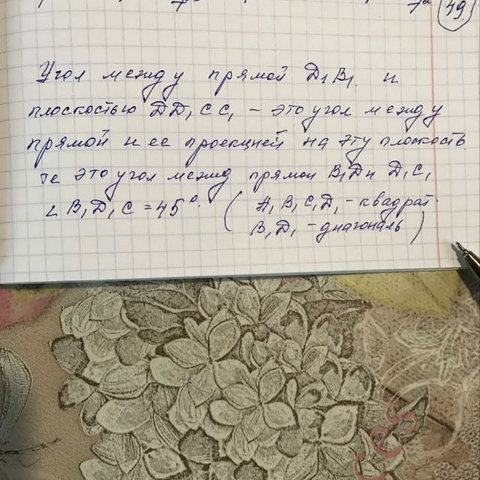 49.
Угол между прямой D₁B₁ и
плоскостью DD₁CC₁ – это угол между
прямой и её проекцией на эту плоскость
те это угол межд прямой B₁D₁ и D₁C₁
∠B₁D₁C = 45°. (A₁B₁C₁D₁ – квадрат
B₁D₁ – диагональ)